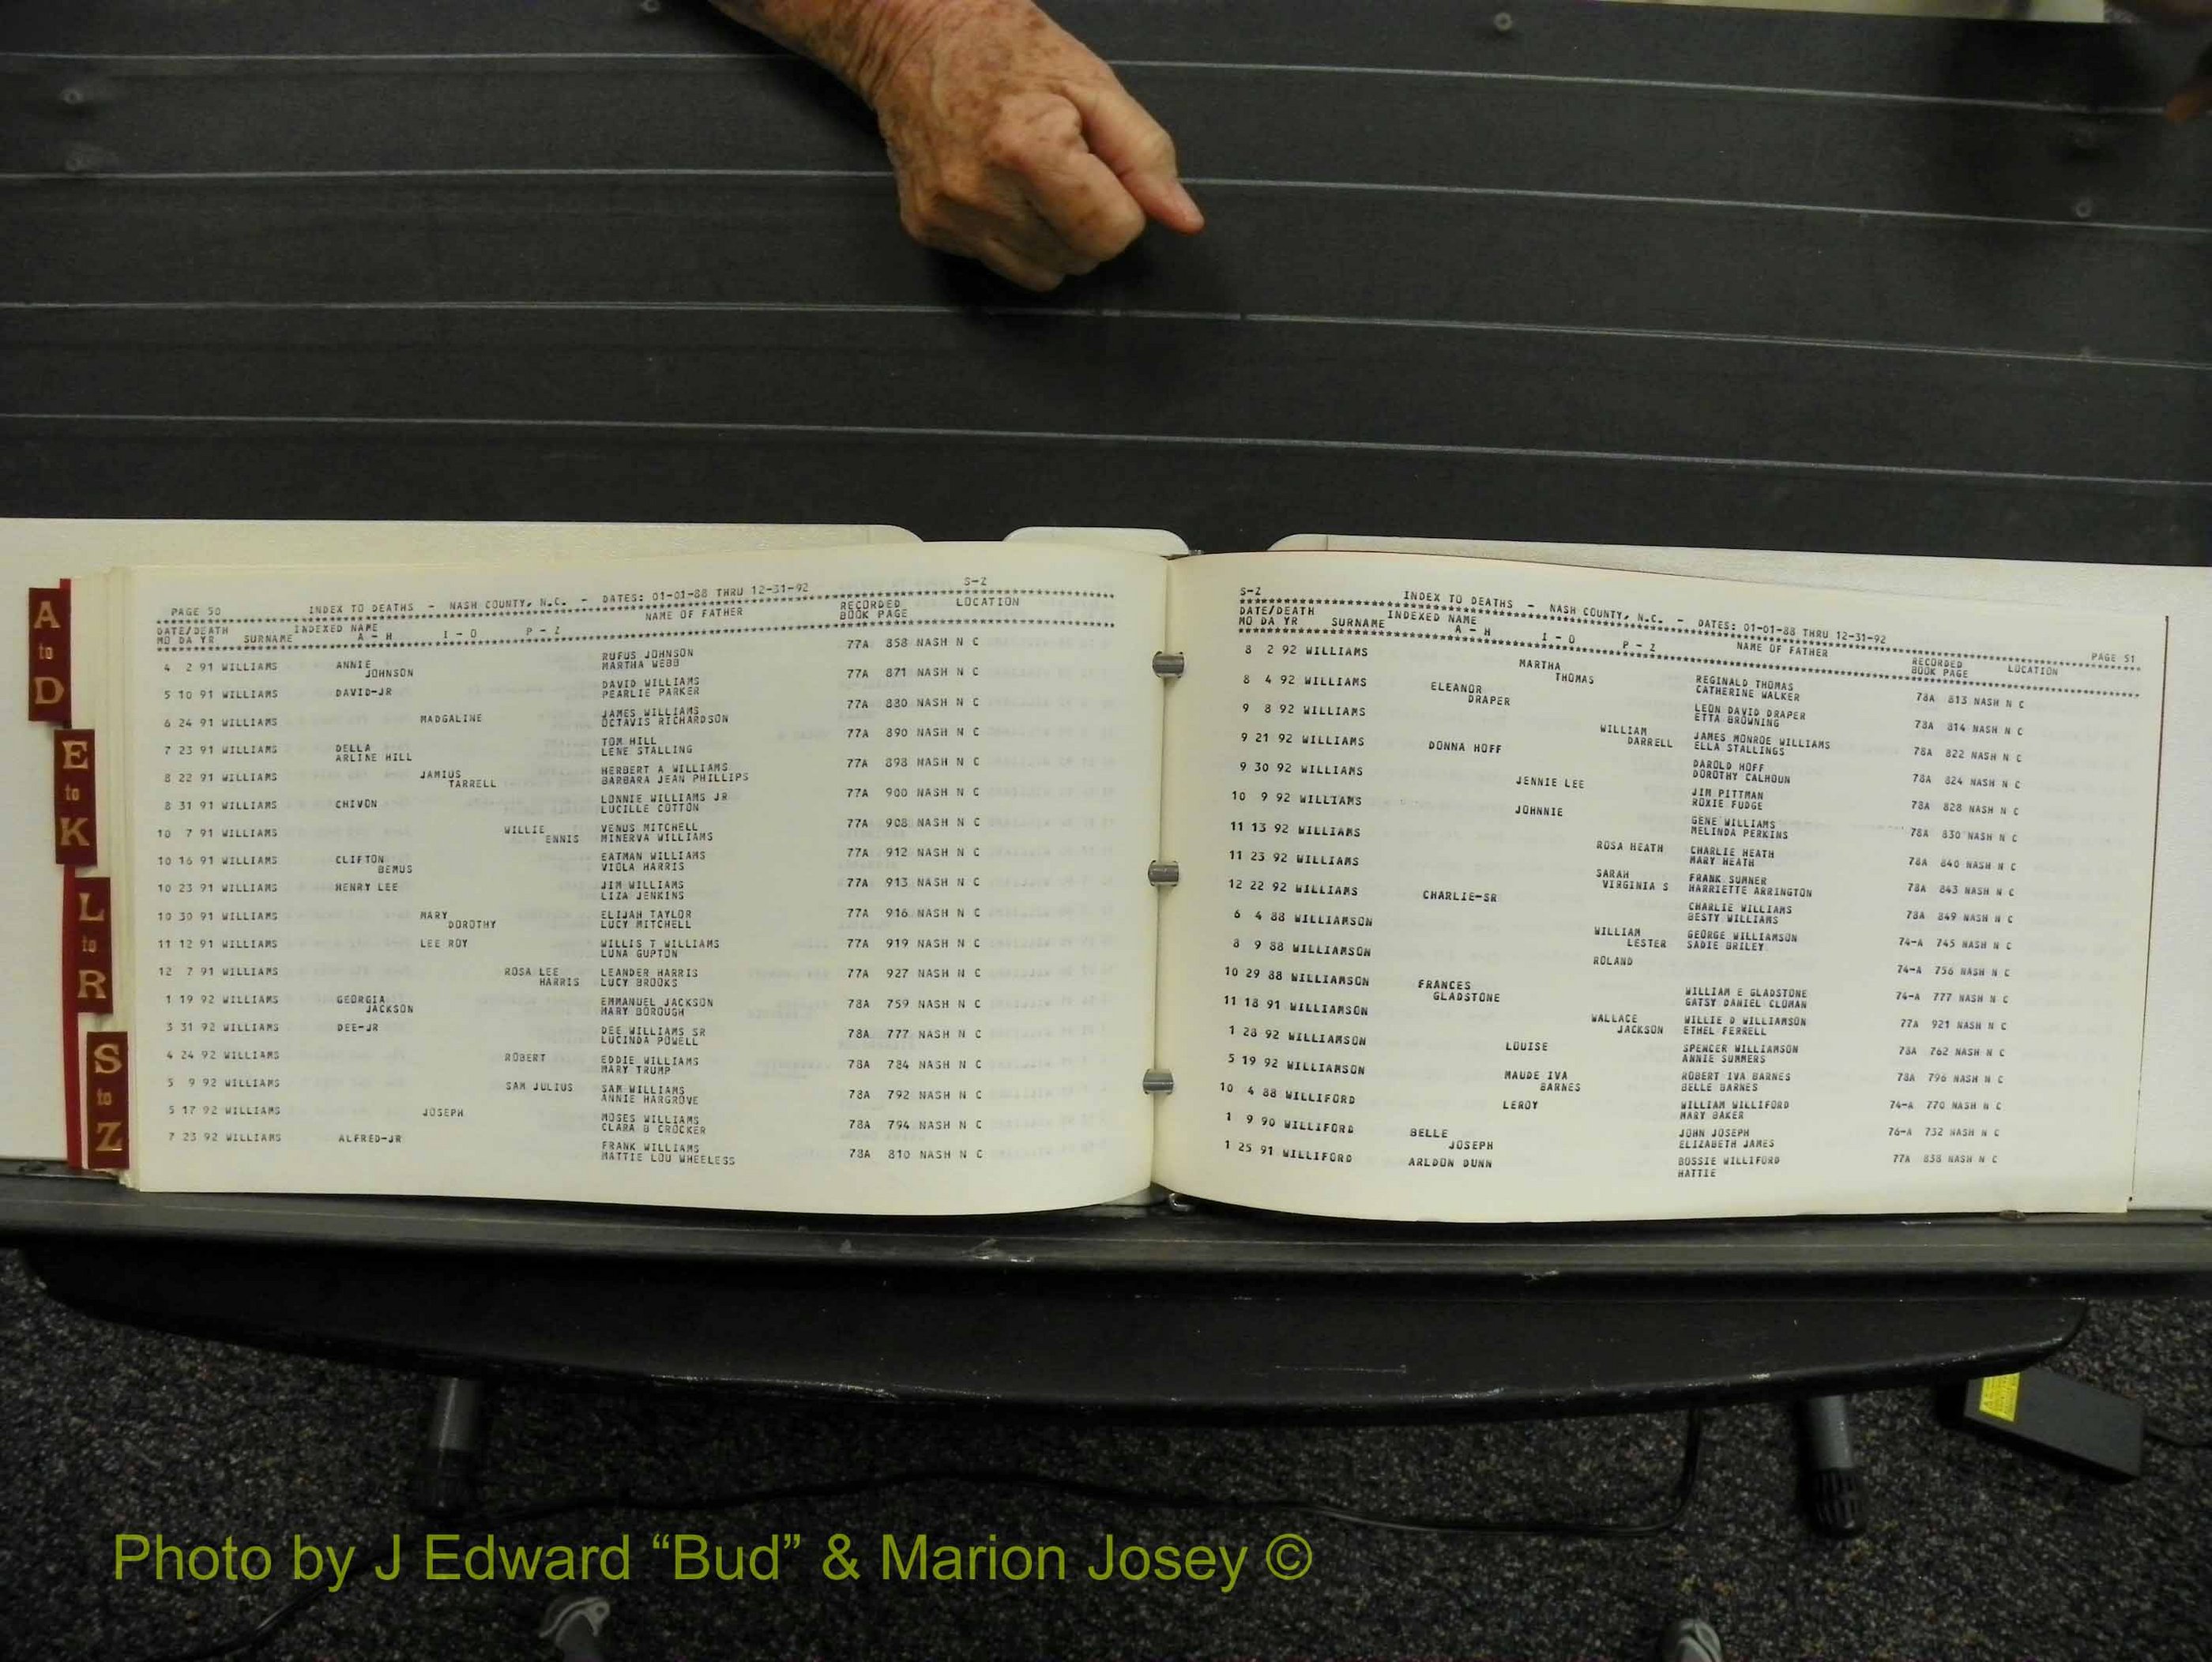 A
to
D
E
to
K
L
to
R
S
to
Z
S-Z
PAGE 50 INDEX TO DEATHS - NASH COUNTY, N.C. - DATES: 01-01-88 THRU 12-31-92
DATE/DEATH INDEXED NAME NAME OF FATHER RECORDED LOCATION
MO DA YR SURNAME A - H I - O P - Z BOOK PAGE
4 2 91 WILLIAMS ANNIE RUFUS JOHNSON 77A 858 NASH N C
JOHNSON MARTHA WEBB
5 10 91 WILLIAMS DAVID-JR DAVID WILLIAMS 77A 871 NASH N C
PEARLIE PARKER
6 24 91 WILLIAMS MADGALINE JAMES WILLIAMS 77A 880 NASH N C
OCTAVIS RICHARDSON
7 23 91 WILLIAMS DELLA TOM HILL 77A 890 NASH N C
ARLINE HILL LENE STALLING
8 22 91 WILLIAMS JAMIUS HERBERT A WILLIAMS 77A 898 NASH N C
TARRELL BARBARA JEAN PHILLIPS
8 31 91 WILLIAMS CHIVON LONNIE WILLIAMS JR 77A 900 NASH N C
LUCILLE COTTON
10 7 91 WILLIAMS WILLIE VENUS MITCHELL 77A 908 NASH N C
ENNIS MINERVA WILLIAMS
10 16 91 WILLIAMS CLIFTON EATMAN WILLIAMS 77A 912 NASH N C
BEMUS VIOLA HARRIS
10 23 91 WILLIAMS HENRY LEE JIM WILLIAMS 77A 913 NASH N C
LIZA JENKINS
10 30 91 WILLIAMS MARY ELIJAH TAYLOR 77A 916 NASH N C
DOROTHY LUCY MITCHELL
11 12 91 WILLIAMS LEE ROY WILLIS T WILLIAMS 77A 919 NASH N C
LUNA GUPTON
12 7 91 WILLIAMS ROSA LEE LEANDER HARRIS 77A 927 NASH N C
HARRIS LUCY BROOKS
1 19 92 WILLIAMS GEORGIA EMMANUEL JACKSON 78A 759 NASH N C
JACKSON MARY BOROUGH
3 31 92 WILLIAMS DEE-JR DEE WILLIAMS SR 78A 777 NASH N C
LUCINDA POWELL
4 24 92 WILLIAMS ROBERT EDDIE WILLIAMS 78A 784 NASH N C
MARY TRUMP
5 9 92 WILLIAMS SAM JULIUS SAM WILLIAMS 78A 792 NASH N C
ANNIE HARGROVE
5 17 92 WILLIAMS JOSEPH MOSES WILLIAMS 78A 794 NASH N C
CLARA B CROCKER
7 23 92 WILLIAMS ALFRED-JR FRANK WILLIAMS 78A 810 NASH N C
MATTIE LOU WHEELESS
S-Z INDEX TO DEATHS - NASH COUNTY, N.C. - DATES: 01-01-88 THRU 12-31-92 PAGE 51
DATE/DEATH INDEXED NAME NAME OF FATHER RECORDED LOCATION
MO DA YR SURNAME A - H I - O P - Z BOOK PAGE
8 2 92 WILLIAMS MARTHA REGINALD THOMAS 78A 813 NASH N C
THOMAS CATHERINE WALKER
8 4 92 WILLIAMS ELEANOR LEON DAVID DRAPER 78A 814 NASH N C
DRAPER ETTA BROWNING
9 8 92 WILLIAMS WILLIAM JAMES MONROE WILLIAMS 78A 822 NASH N C
DARRELL ELLA STALLINGS
9 21 92 WILLIAMS DONNA HOFF DAROLD HOFF 78A 824 NASH N C
DOROTHY CALHOUN
9 30 92 WILLIAMS JENNIE LEE JIM PITTMAN 78A 828 NASH N C
ROXIE FUDGE
10 9 92 WILLIAMS JOHNNIE GENE WILLIAMS 78A 830 NASH N C
MELINDA PERKINS
11 13 92 WILLIAMS ROSA HEATH CHARLIE HEATH 78A 840 NASH N C
MARY HEATH
11 23 92 WILLIAMS SARAH FRANK SUMNER 78A 843 NASH N C
VIRGINIA S HARRIETTE ARRINGTON
12 22 92 WILLIAMS CHARLIE-SR CHARLIE WILLIAMS 78A 849 NASH N C
BESTY WILLIAMS
6 4 88 WILLIAMSON WILLIAM GEORGE WILLIAMSON 74-A 745 NASH N C
LESTER SADIE BRILEY
8 9 88 WILLIAMSON ROLAND 74-A 756 NASH N C
10 29 88 WILLIAMSON FRANCES WILLIAM E GLADSTONE 74-A 777 NASH N C
GLADSTONE GATSY DANIEL CLOMAN
11 18 91 WILLIAMSON WALLACE WILLIE D WILLIAMSON 77A 921 NASH N C
JACKSON ETHEL FERRELL
1 28 92 WILLIAMSON LOUISE SPENCER WILLIAMSON 78A 762 NASH N C
ANNIE SUMMERS
5 19 92 WILLIAMSON MAUDE IVA ROBERT IVA BARNES 78A 796 NASH N C
BARNES BELLE BARNES
10 4 88 WILLIFORD LEROY WILLIAM WILLIFORD 74-A 770 NASH N C
MARY BAKER
1 9 90 WILLIFORD BELLE JOHN JOSEPH 76-A 732 NASH N C
JOSEPH ELIZABETH JAMES
1 25 91 WILLIFORD ARLDON DUNN BOSSIE WILLIFORD 77A 838 NASH N C
HATTIE
Photo by J Edward “Bud” & Marion Josey ©